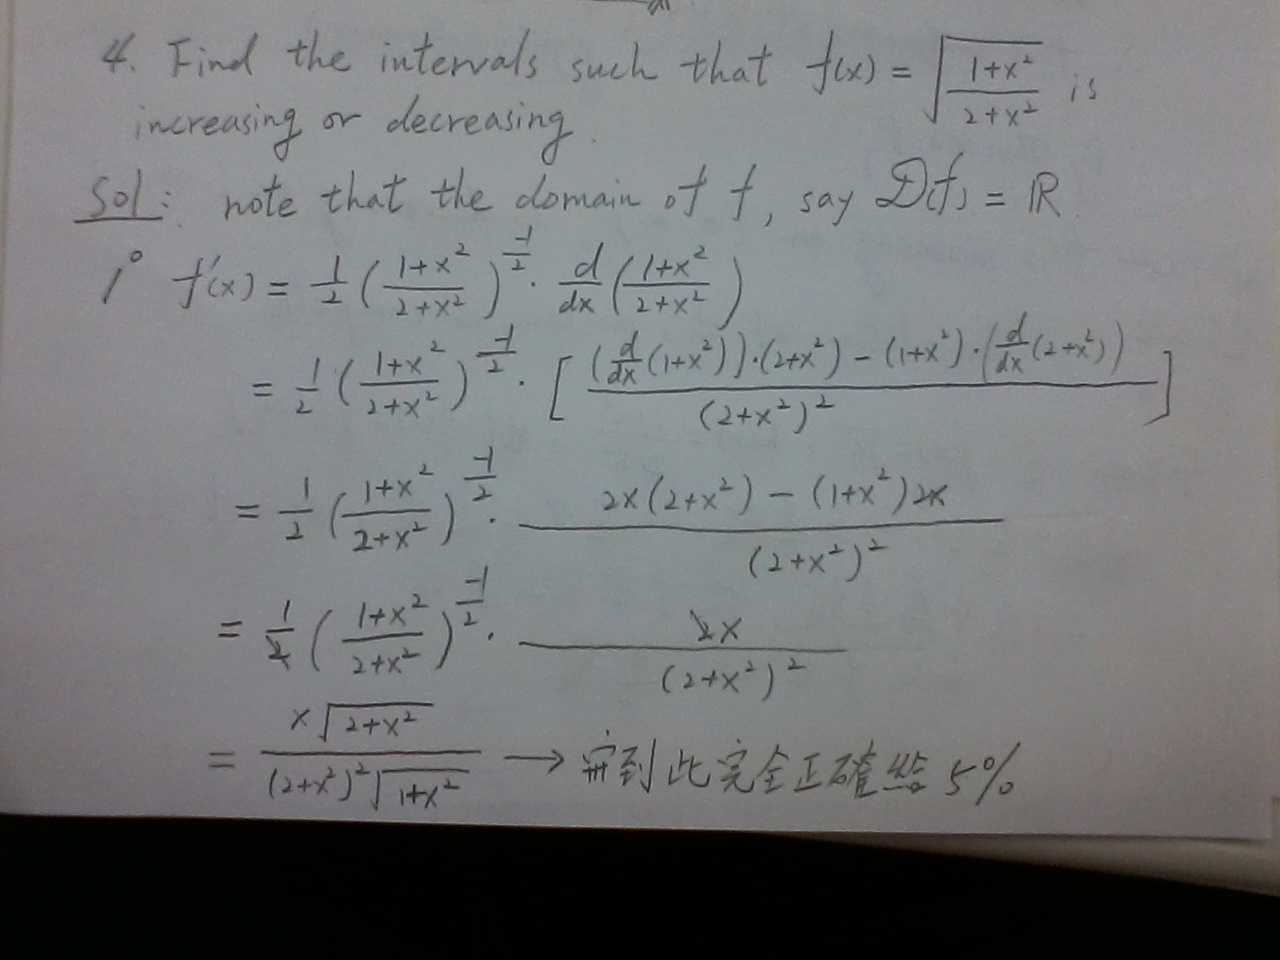 4. Find the intervals such that f(x) = √((1+x²)/(2+x²)) is
increasing or decreasing.
Sol: note that the domain of f, say D(f) = ℝ.
1° f'(x) = 1/2 ((1+x²)/(2+x²))^(-1/2) · d/dx ((1+x²)/(2+x²))
= 1/2 ((1+x²)/(2+x²))^(-1/2) · [((d/dx (1+x²))·(2+x²) - (1+x²)·(d/dx (2+x²)))/(2+x²)²]
= 1/2 ((1+x²)/(2+x²))^(-1/2) · (2x(2+x²) - (1+x²)2x)/(2+x²)²
= 1/2 ((1+x²)/(2+x²))^(-1/2) · 2x/(2+x²)²
= x√(2+x²)/((2+x²)²√(1+x²)) → 算到此完全正確給 5%